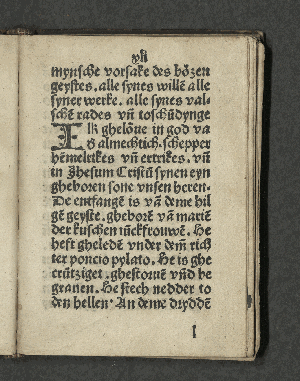 vñ
mynsche vorsake des bözen
geystes. alle synes willē alle
syner werke. alle synes val-
schē rades vñ toschüdynge
IK ghelöue in god va
ð almechtich. schepper
hēmelrikes vñ ertrikes. vñ
in Jhesum Cristū synen eyn
gheboren sone vnsen heren.
De entfangē is vā deme hil
gē geyste. gheborē vā mariē
der kuschen iückfrouwē. He
heft gheledē vnder dem rich
ter poncio pylato. He is ghe
crütziget. ghestoruē vñd be
grauen. He stech nedder to
den hellen. An deme drydde